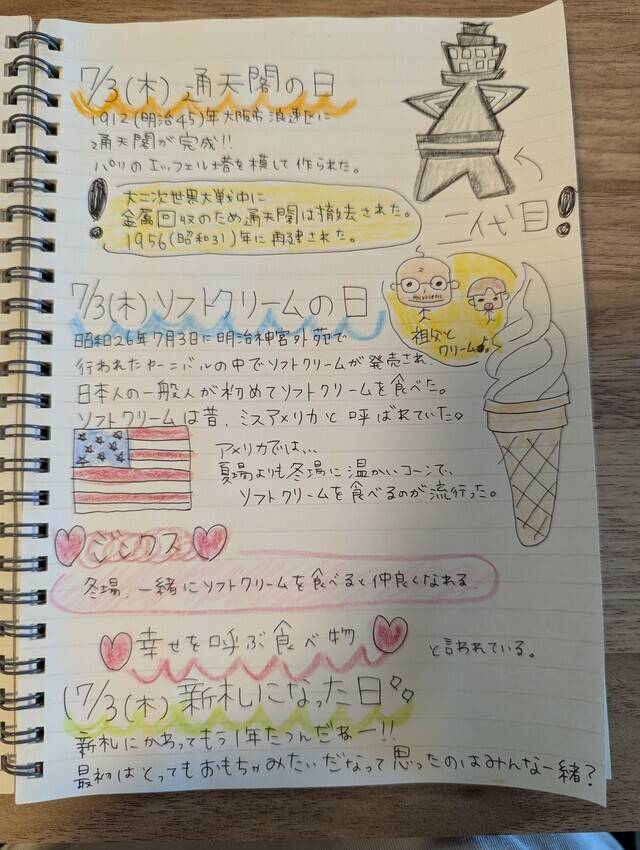 7/3(木) 通天閣の日
1912(明治45)年大阪市浪速区に
通天閣が完成!!
パリのエッフェル塔を模して作られた。
二代目
大二次世界大戦中に
金属回収のため通天閣は撤去された。
1956(昭和31)年に再建された。
7/3(木)ソフトクリームの日
祖父と
クリーム
昭和26年7月3日に明治神宮外苑で
行われたカーニバルの中でソフトクリームが発売され、
日本人の一般人が初めてソフトクリームを食べた。
ソフトクリームは昔、ミスアメリカと呼ばれていた。
アメリカでは、、、
夏場よりも冬場に温かいコーンで、
ソフトクリームを食べるのが流行った。
ジンクス
冬場、一緒にソフトクリームを食べると仲良くなれる
幸せを呼ぶ食べ物
と言われている。
7/3(木)新札になった日
新札にかわってもう1年たつんだねー!!
最初はとってもおもちゃみたいだなって思ったのはみんな一緒?